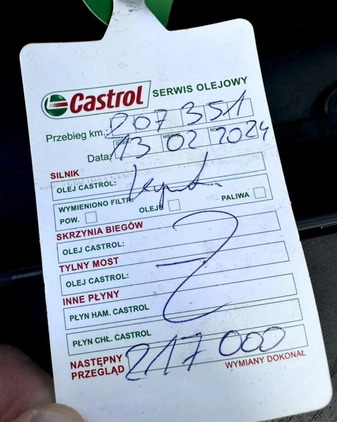 Castrol SERWIS OLEJOWY
Przebieg km.: 207 351
Data: 13 02 2024
SILNIK
OLEJ CASTROL:
WYMIENIONO FILTR:
POW. OLEJU PALIWA
SKRZYNIA BIEGÓW
OLEJ CASTROL:
TYLNY MOST
OLEJ CASTROL:
INNE PŁYNY
PŁYN HAM. CASTROL
PŁYN CHŁ. CASTROL
NASTĘPNY
PRZEGLĄD 217 000
WYMIANY DOKONAŁ